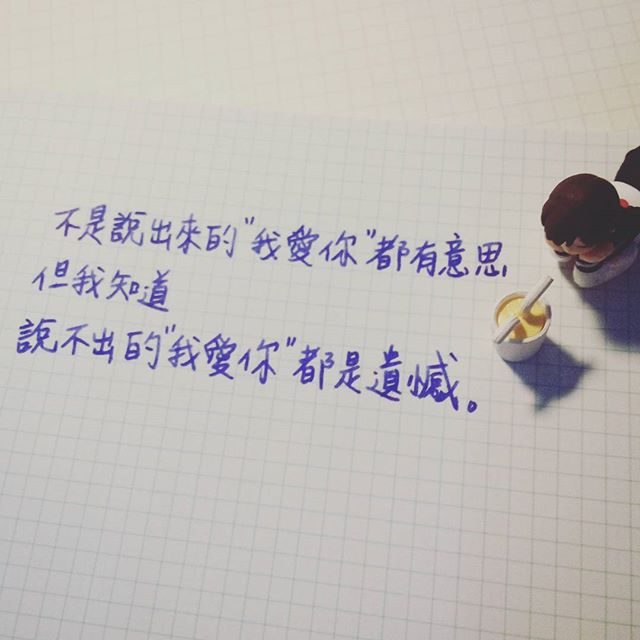 不是說出來的"我愛你"都有意思
但我知道
說不出的"我愛你"都是遺憾。